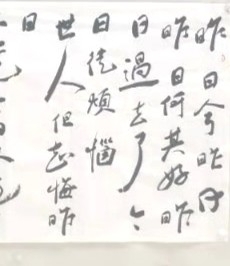 昨日兮昨日
昨日何其好昨
日過去了今
日徒煩惱
世人但悔昨
日